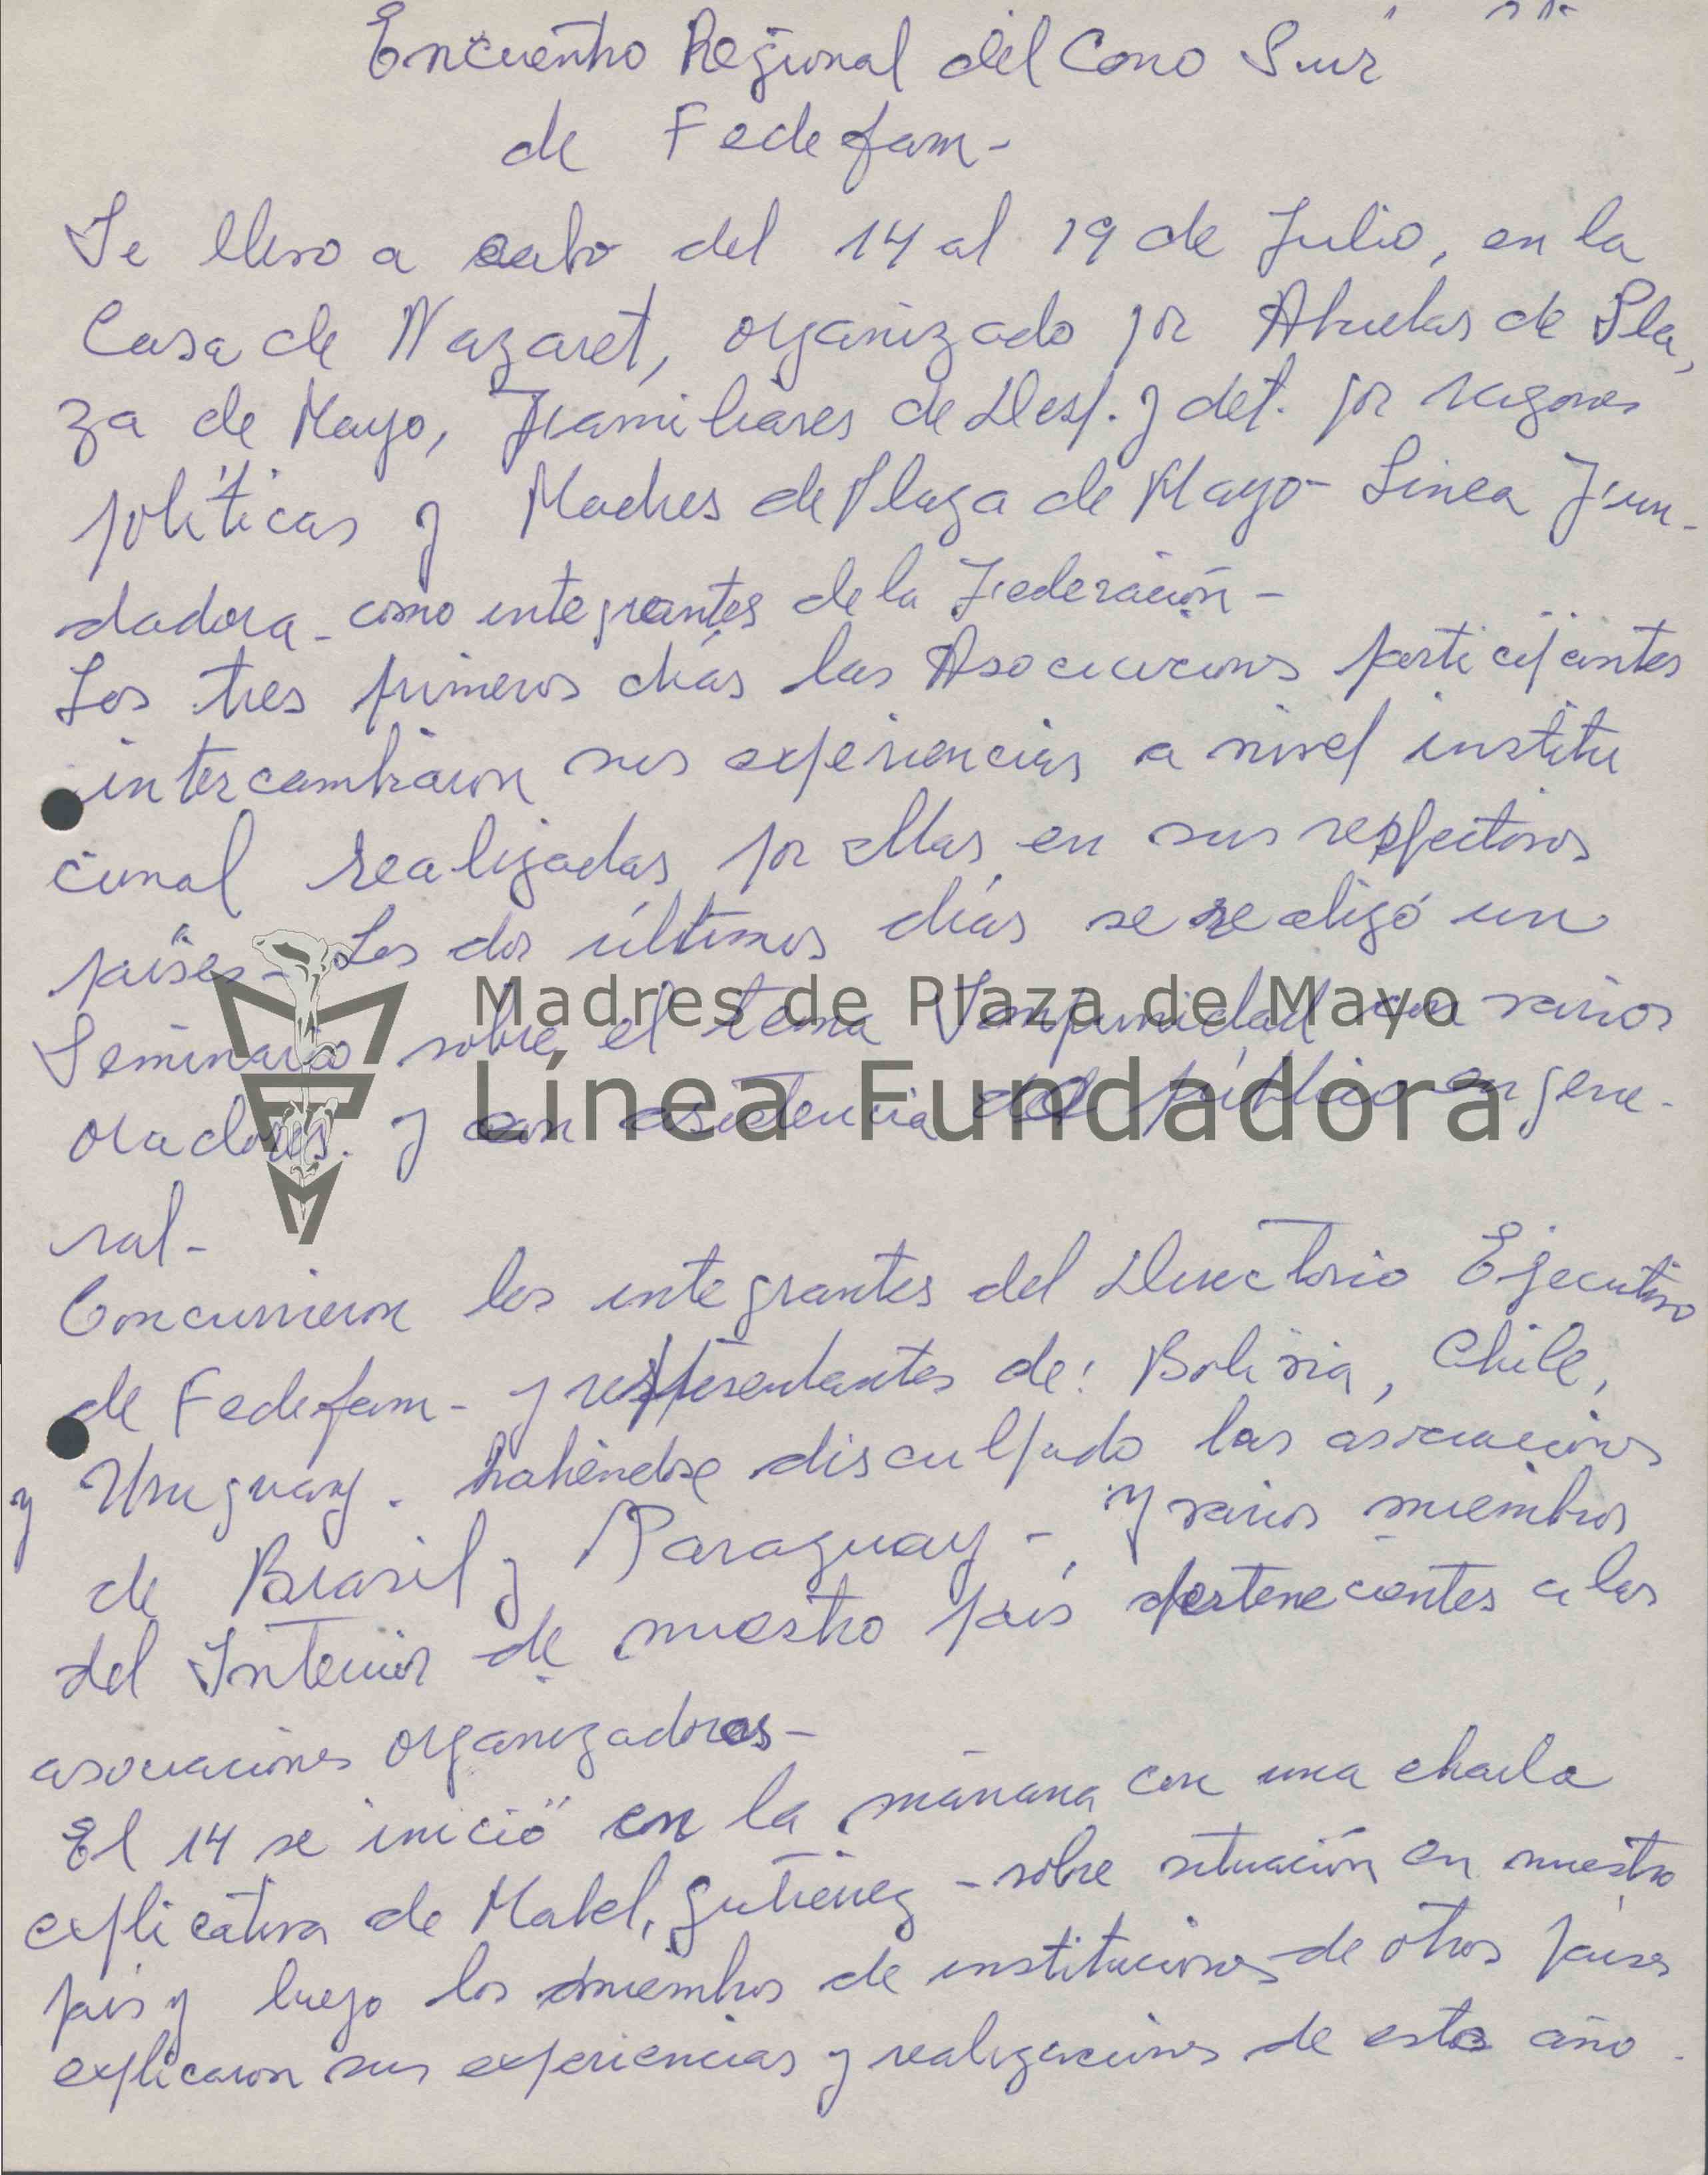 Encuentro Regional del Cono Sur
de Fedefam-
Se llevo a cabo del 14 al 19 de Julio, en la
Casa de Nazaret, organizado por Abuelas de Pla,
za de Mayo, Familiares de Desp. y det. por razones
políticas y Madres de Plaza de Mayo- Linea Fun-
dadora - como integrantes de la Federación -
Los tres primeros días las Asociaciones participantes
intercambiaron sus experiencias a nivel institu
cional realizadas por ellas, en sus respectivos
países - Los dos últimos días se realizó un
Madres de Plaza de Mayo
Seminario sobre el tema Impunidad con varios
Línea Fundadora
oradores. y con asistencia del público en gene-
ral-
Concurrieron los integrantes del Directorio Ejecutivo
de Fedefam - y representantes de: Bolivia, Chile,
y Uruguay. habiéndose disculpado las asociaciones
de Brasil y Paraguay -, y varios miembros
del Interior de nuestro país pertenecientes a las
asociaciones organizadoras-
El 14 se inició en la mañana con una charla
explicativa de Mabel, Gutiérrez - sobre situación en nuestro
país y luego los miembros de instituciones de otros países
explicaron sus experiencias y realizaciones de este año.